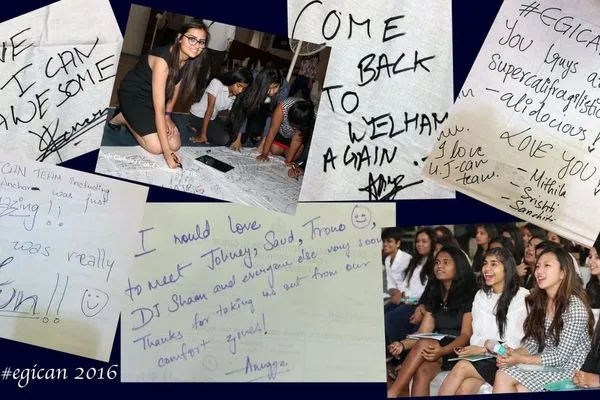 I CAN
AWESOME
COME
BACK
TO
WELHAM
AGAIN
#EGICAN
You guys a
Supercalifragilistic
- alidocious!
LOVE YOU
- Mithila
- Srishti
- Sanchita
I love
u I-can
team.
CAN TEAM including
Anchor was just
zing!!
was really
un!!
I would love
to meet Johney, Saud, Trono,
DJ Shaan and everyone else very soon
Thanks for taking us out from our
comfort zones!
#egican 2016